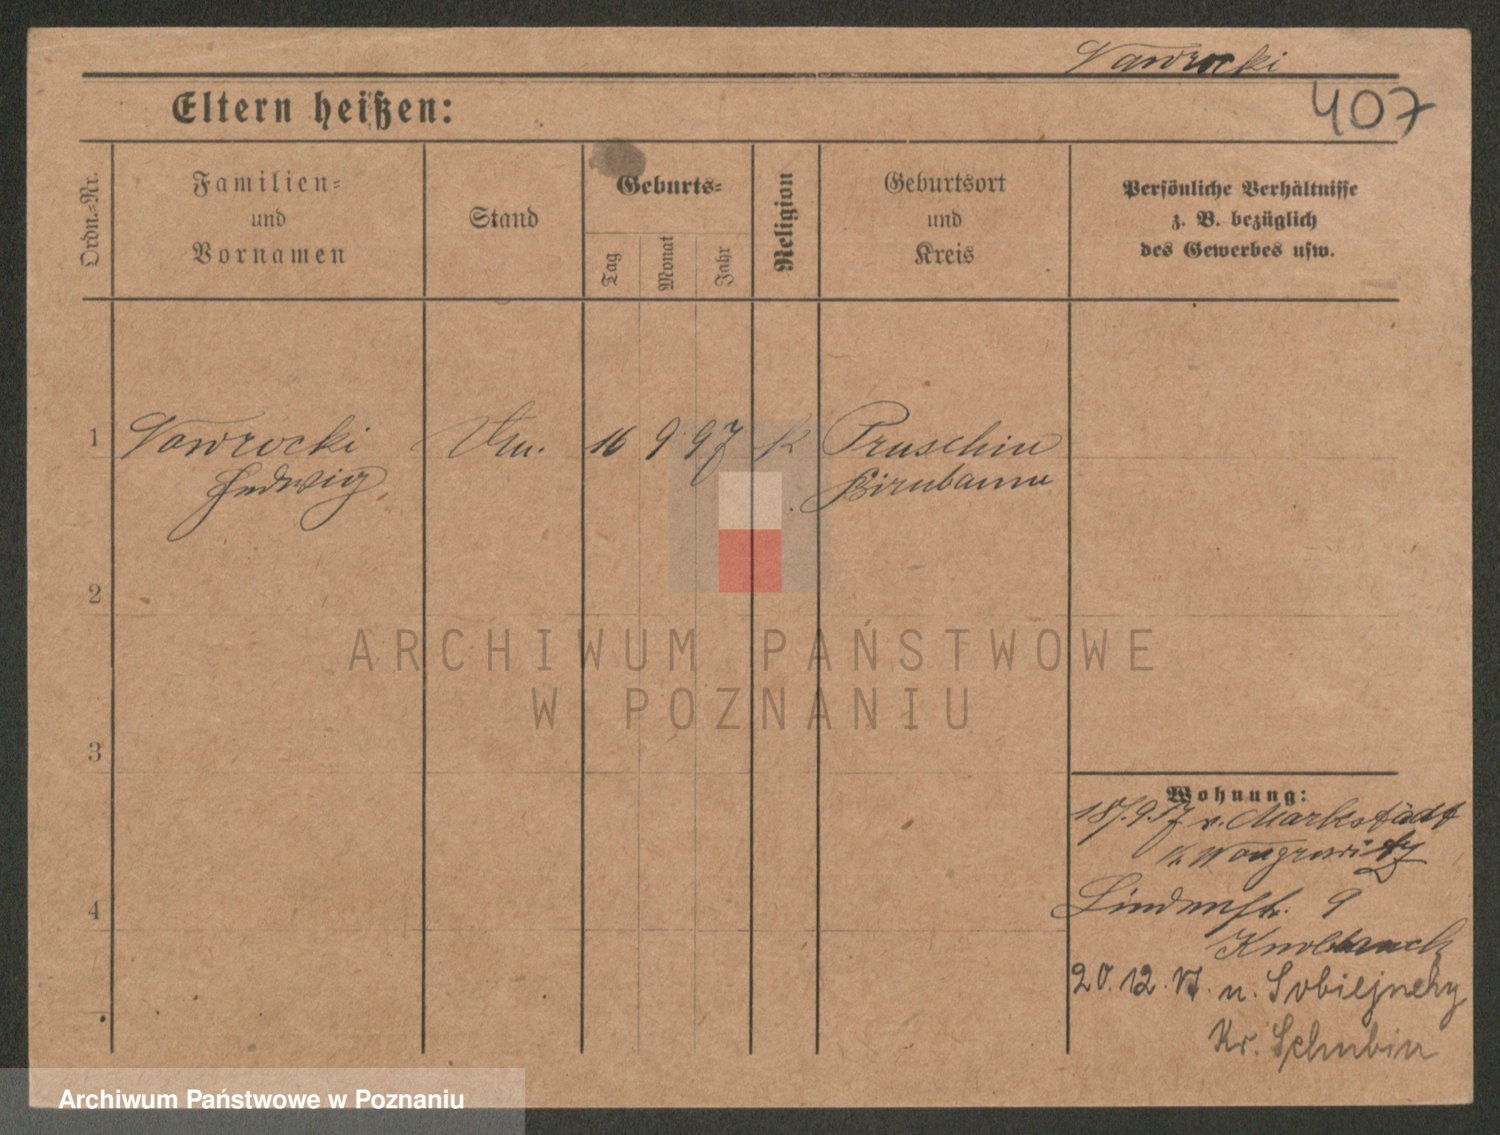 Nawrocki
407
Eltern heißen:
Ordn.-Nr.
Familien-
und
Vornamen
Stand
Geburts-
Tag
Monat
Jahr
Religion
Geburtsort
und
Kreis
Persönliche Verhältnisse
z. B. bezüglich
des Gewerbes usw.
1 Nawrocki 16 9 97 k Pruschin
Hedwig Birnbaum
2
3
4
ARCHIWUM PAŃSTWOWE
W POZNANIU
Wohnung:
18/9.17 v. Markstädt
K. Wongrowitz
Lindenstr. 9
20.12.17. n.
Kr. Schubin
Archiwum Państwowe w Poznaniu